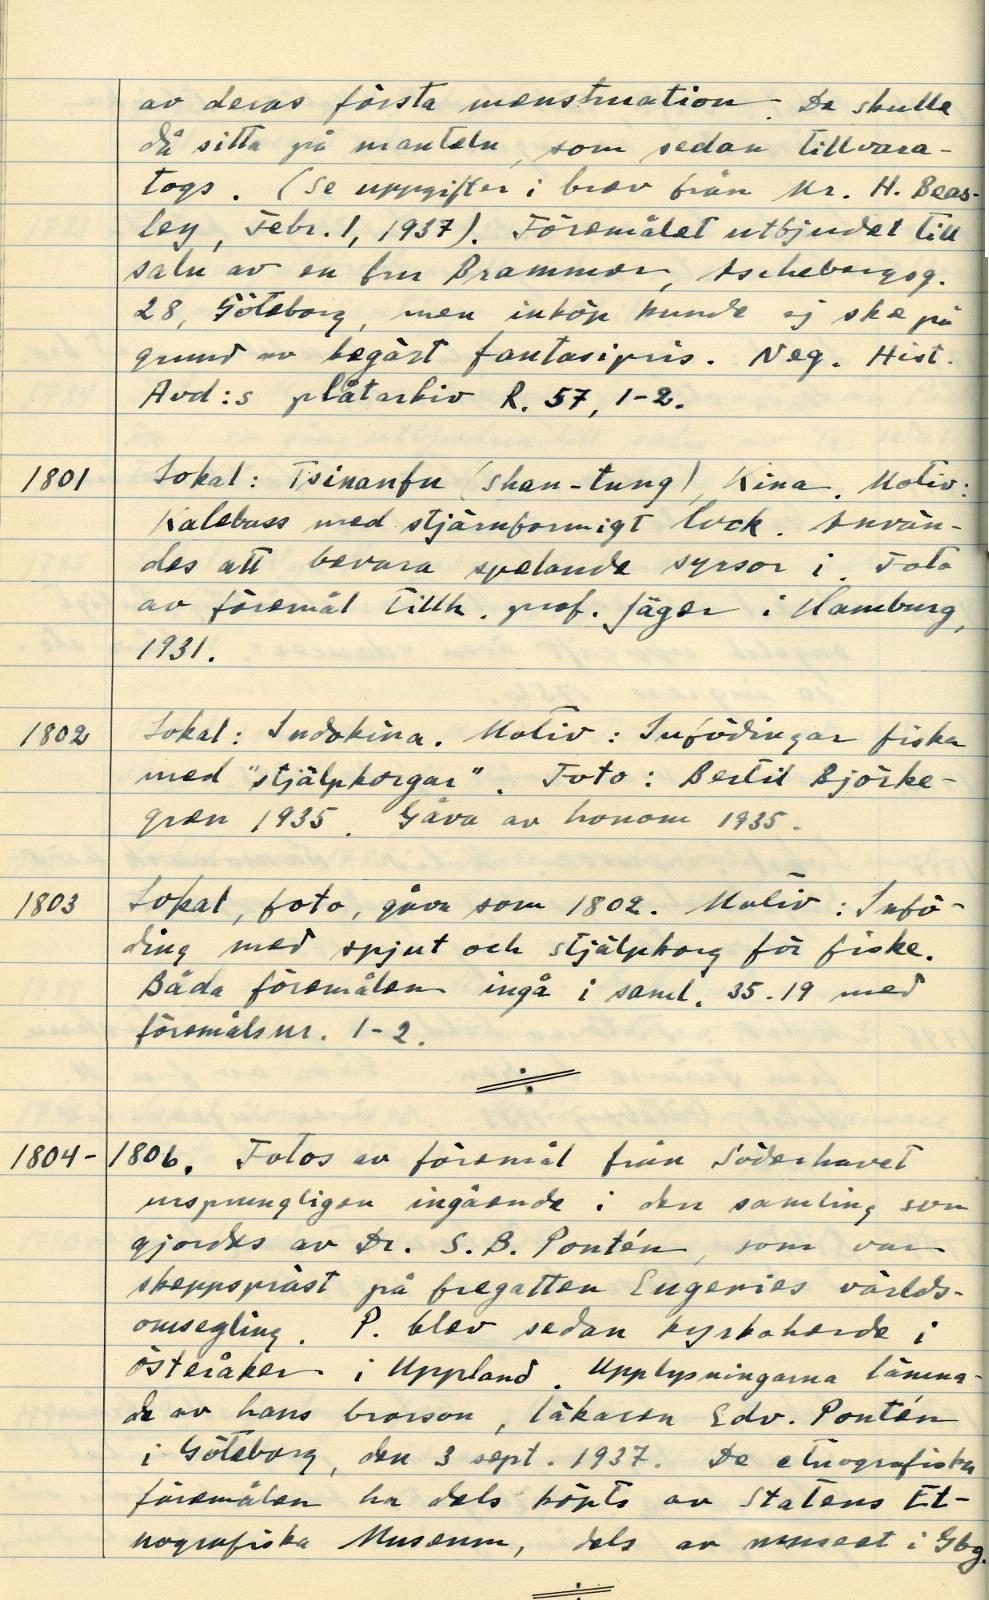 av deras första menstruation. De skulle
då sitta på manteln, som sedan tillvara-
togs. (Se uppgifter i brev från Mr. H. Beas-
ley, Febr. 1, 1937). Föremålet utbjudet till
salu av en fru Brammer, Aschebergsg.
28, Göteborg, men inköp kunde ej ske på
grund av begärt fantasipris. Neg. Hist.
Avd:s plåtarkiv R. 57, 1-2.
1801 Lokal: Tsinanfu (Shan-tung), Kina. Motiv:
Kalebass med stjärnformigt lock. Använ-
des att bevara spelande syrsor i. Foto
av föremål tillh. prof. Jäger i Hamburg,
1931.
1802 Lokal: Indokina. Motiv: Infödingar fiska
med "stjälpkorgar". Foto: Bertil Björke-
gren 1935. Gåva av honom 1935.
1803 Lokal, foto, gåva som 1802. Motiv: Infö-
ding med spjut och stjälpkorg för fiske.
Båda föremålen ingå i saml. 35.19 med
föremålsnr. 1-2.
1804-1806. Fotos av föremål från Söderhavet
ursprungligen ingående i den samling som
gjordes av Dr. S. B. Pontén, som var
skeppspräst på fregatten Eugenies världs-
omsegling. P. blev sedan kyrkoherde i
Österåker i Uppland. Upplysningarna lämna-
de av hans brorson, läkaren Edv. Pontén
i Göteborg, den 3 sept. 1937. De etnografiska
föremålen ha dels köpts av Statens Et-
nografiska Museum, dels av museet i Gbg.